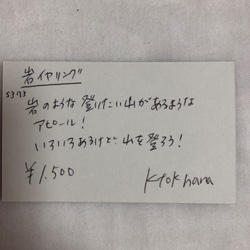 岩イヤリング
岩のような 登りたい山があるような
アピール!
いろいろあるけど、山を登ろう!
¥1,500